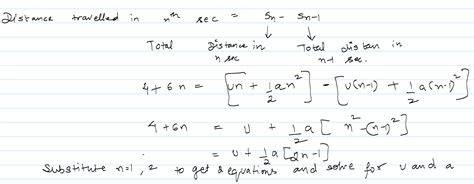 Distance travelled in nth sec = Sn - Sn-1
↓ ↓
Total Distance in n sec Total distan in n-1 sec.
4+6n = [un + 1/2 an²] - [u(n-1) + 1/2 a(n-1)²]
4+6n = u + 1/2 a [n² - (n-1)²]
= u + 1/2 a [2n-1]
Substitute n=1, 2 to get 2 equations and solve for u and a